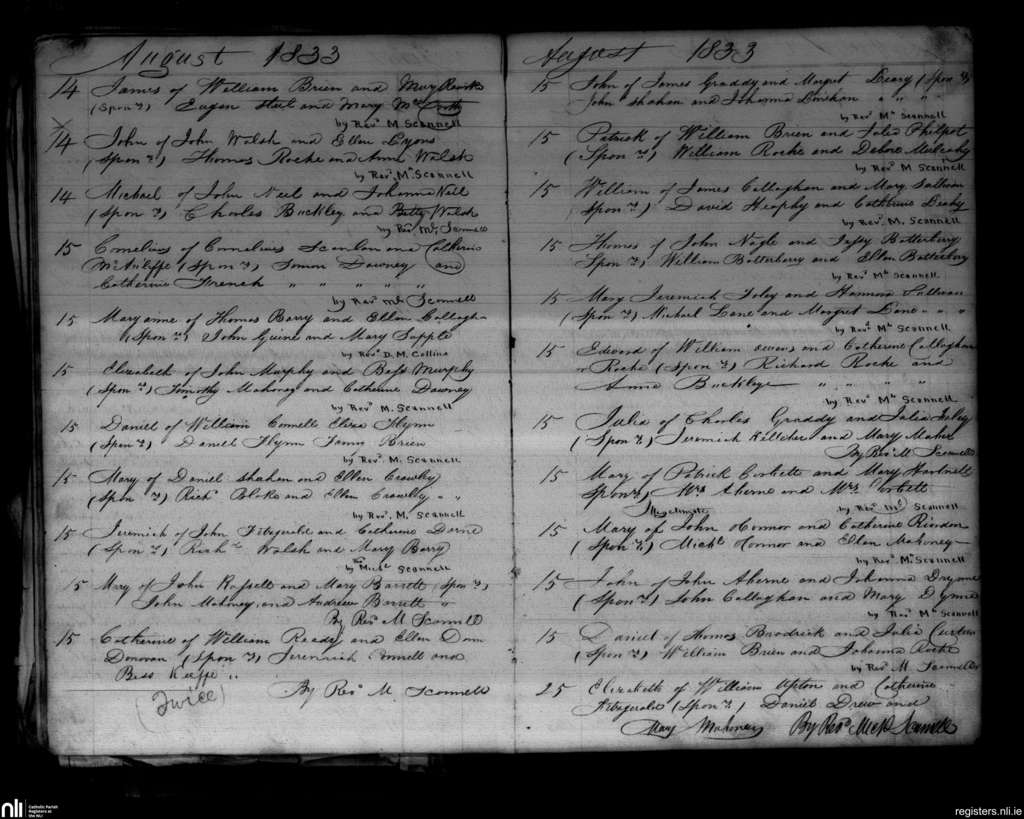 August 1833
14 James of William Brien and Mary
(Spons) Eugen Steel and Mary Mc
by Revd. M. Scannell
14 John of John Walsh and Ellen Lyons
(Spons) Thomas Rocke and Anne Walsh
by Revd. M. Scannell
14 Michael of John Neil and Johanna Nell
(Spons) Charles Buckley and Betty Walsh
by Revd M. Scannell
15 Cornelius of Cornelius Scanlon and Catherine
McAuliffe (Spons) Simon Downey and
Catherine French " " " " "
by Revd Ml. Scannell
15 Maryanne of Thomas Barry and Ellen Callagh-
(Spons) John Guine and Mary Supple
by Revd D. M. Collins
15 Elizabeth of John Murphy and Bess Murphy
(Spons) Timothy Mahoney and Catherine Downey
by Revd M. Scannell
15 Daniel of William Connell Eliza Flynn
(Spons) Daniel Flynn Brien
by Revd M. Scannell
15 Mary of Daniel Shahan and Ellen Crowley
(Spons) Richd and Ellen Crowley " "
by Revd. M. Scannell
15 Jeremiah of John Fitzgerald and Catherine
(Spons) Richd Walsh and Mary Barry
by Revd Michl Scannell
15 Mary of John and Mary Barrett (Spons)
John Mahoney and Andrew Barrett "
By Revd M Scannell
15 Catherine of William Ready and Ellen
Donovan (Spons) Jeremiah Connell and
Bess Keeffe "
By Revd M Scannell
(Twice)
August 1833
15 John of James Graddy and Margret Leary (Spons)
John Shahan and Johanna Linehan " " "
by Revd. Ml Scannell
15 Patrick of William Brien and Julia Philpot
(Spons) William Rocke and Debra Mulcahy
by Revd M Scannell
15 William of James Callaghan and Mary
Spons) David Heaphy and Catherine Leahy
by Revd M. Scannell
15 Thomas of John Nagle and Batterberry
Spons) William Batterberry and Ellen Batterbery
by Revd Ml Scannell.
15 Mary Jeremiah Foley and Hannora Sullivan
(Spons) Michael Lane and Margret Lane " " "
by Revd. Ml Scannell
15 Edward of William owens and Catherine Callaghan
Rocke (Spons) Richard Rocke and
Annie Buckley " " " "
by Revd Ml Scannell
15 Julia of Charles Graddy and Julia Foley
(Spons) Jeremiah Kelleher and Mary Maher
By Revd M Scannell
15 Mary of Patrick Corbette and Mary Hartnett
Spons) Mrs Aherne and Mrs Corbett
by Revd Ml Scannell
15 Mary of John Honnor and Catherine Riordan
(Spons) Michl Honnor and Ellen Mahoney
by Revd M. Scannell
15 John of John Aherne and Johanna
(Spons) John Callaghan and Mary
by Revd Ml Scannell
15 Daniel of Thomas Brodrick and Julia Curtin
(Spons) William Brien and Johanna Rocke
by Revd M Scannell
25 Elizabeth of William Upton and Catherine
Fitzgerald (Spons) Daniel Drew and
Mary Mahoney By Revd. Michl Scannell
nli Catholic Parish
Registers at
the NLI
registers.nli.ie